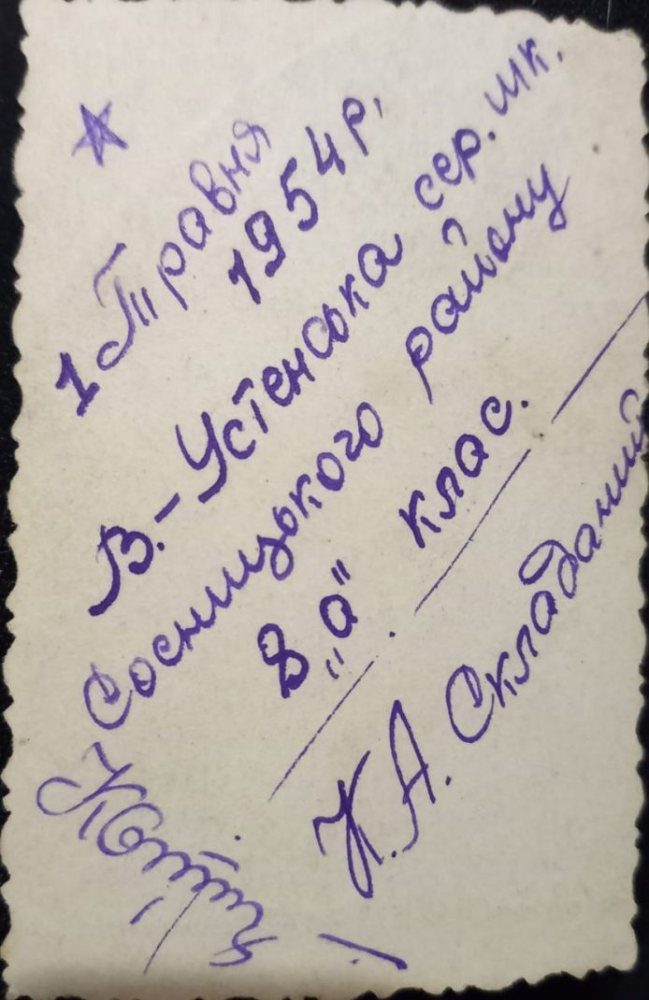 1 Травня
1954 р.
В.-Устенська сер. шк.
Сосницького району
8 „а" клас.
К. А. Складаний